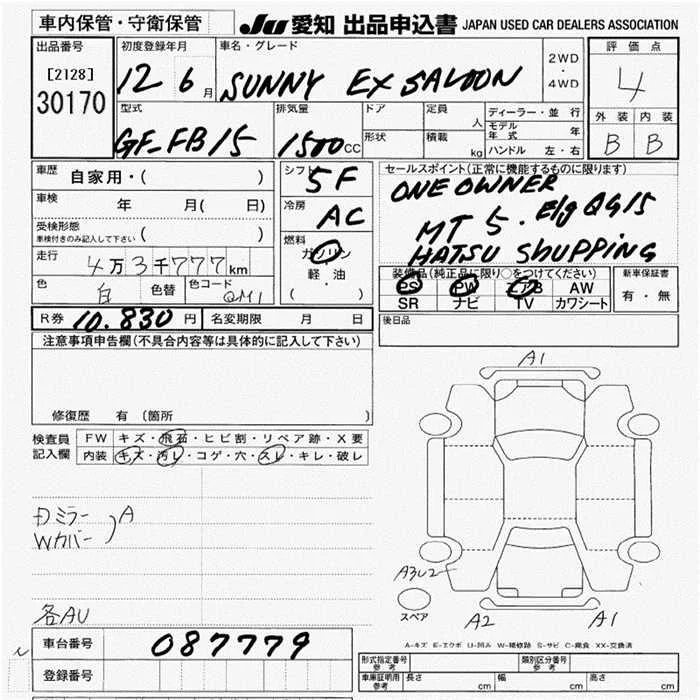 車内保管・守衛保管
JU 愛知 出品申込書 JAPAN USED CAR DEALERS ASSOCIATION
出品番号
[2128]
30170
初度登録年月
12 6月
車名・グレード
SUNNY EX SALOON
2WD
・
4WD
評価点
4
外装 内装
B B
型式
GF-FB15
排気量
1500CC
ドア
形状
定員
人
積載
kg
ディーラー・並行
モデル年式 年
ハンドル 左・右
車歴
自家用・( )
車検
年 月( 日)
受検形態
車検付きのみ記入して下さい ( )
走行
4万3千777km
色
白
色替
色コード
QM1
シフト
5F
冷房
AC
燃料
ガソリン
軽・油
( )
セールスポイント(正常に機能するものに限ります)
ONE OWNER
MT 5. E/g QG15
HATSU ShUPPING
装備品(純正品に限り○をつけてください)
PS PW エアB AW
SR ナビ TV カワシート
新車保証書
有・無
後日品
R券 10.830円
名変期限 月 日
注意事項申告欄(不具合内容等は具体的に記入して下さい)
修復歴 有(箇所 )
検査員
記入欄
FW キズ・飛石・ヒビ割・リペア跡・X要
内装 キズ・汚レ・コゲ・穴・スレ・キレ・破レ
Dミラー
Wカバー
A
各AU
A1
A3
スペア
A2
A1
A-キズ E-エクボ U-凹み W-補修跡 S-サビ C-腐食 XX-交換済
車台番号
087779
登録番号
形式指定番号
参考
類別区分番号
参考
車庫証明用
参考
長さ cm
幅 cm
高さ cm